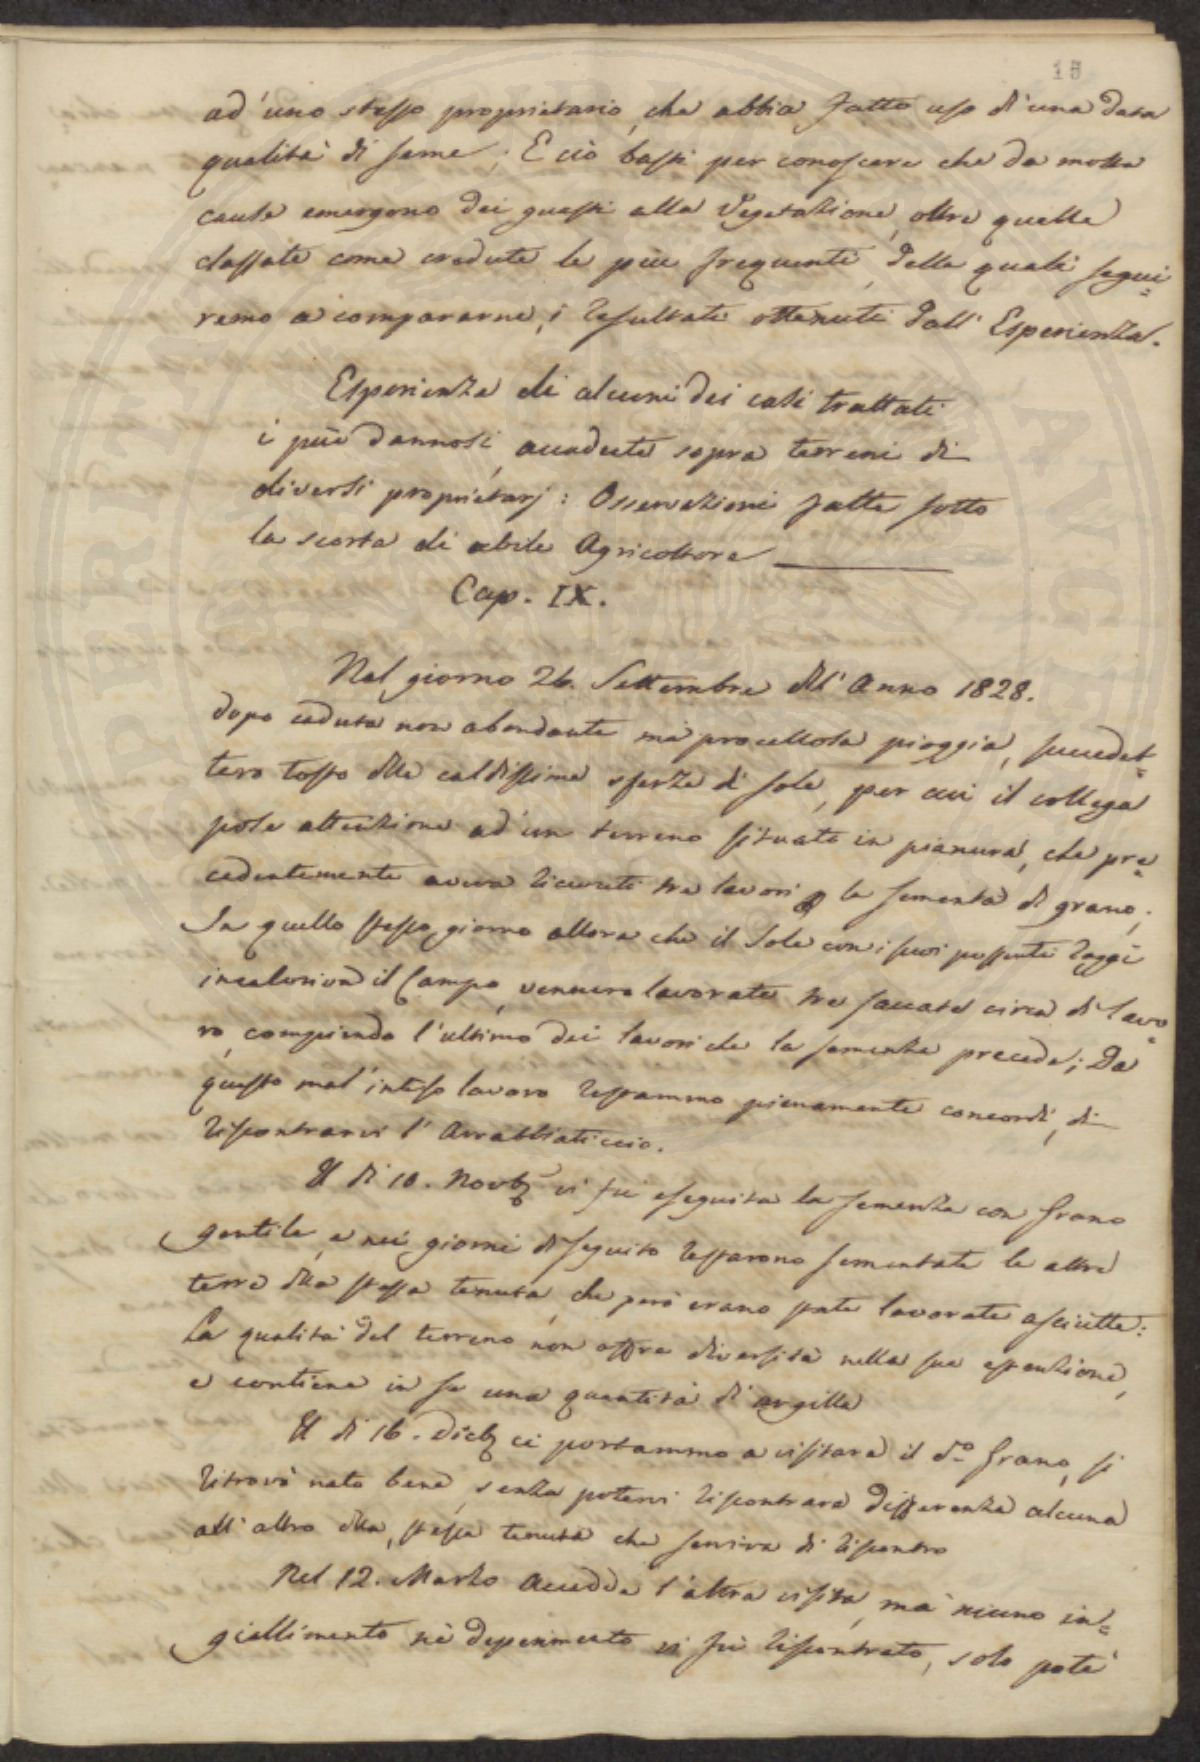 15
ad'uno stesso proprietario, che abbia fatto uso di una data
qualità di seme; E ciò basti per conoscere che da molte
cause emergono dei guasti alla Vegetazione, oltre quelle
classate come credute le più frequenti, delle quali segui=
remo a compararne, i resultati ottenuti dall'Esperienza.
Esperienza di alcuni dei casi trattati
i più dannosi, accadute sopra terreni di
diversi proprietarj: Osservazioni fatte sotto
la scorta di abile Agricoltore
Cap. IX.
Nel giorno 26. Settembre dell'Anno 1828.
dopo caduta non abondante mà procellosa pioggia, succedet=
tero tosto dlle caldissime sferze di sole, per cui il collega
pose attenzione ad'un terreno situato in pianura, che pre=
cedentemente aveva ricevuti tre lavori la sementa di grano;
In quello stesso giorno allora che il Sole con i suoi possenti raggi
incaloriva il Campo, vennero lavorate tre saccate circa di lavo=
ro, compiendo l'ultimo dei lavori che la sementa precede; Da
questo mal'inteso lavoro restammo pienamente concordi, di
riscontrarvi l'Arrabbiaticcio.
Il dì 10. Novb vi fu eseguita la sementa con Grano
gentile, e nei giorni di seguito restarono sementate le altre
terre dlla stessa tenuta, che però erano state lavorate asciutte:
La qualità del terreno non offre diversità nella sua estenzione,
e contiene in se una quantità di argilla
Il dì 16. Dicb ci portammo a visitare il do Grano, si
ritrovò nato bene, senza potervi riscontrare differenza alcuna
all'altro dlla, stessa tenuta che serviva di riscontro
Nel 12. Marzo accadde l'altra visita, mà niuno in=
giallimento nè deperimento vi fù riscontrato, solo potè